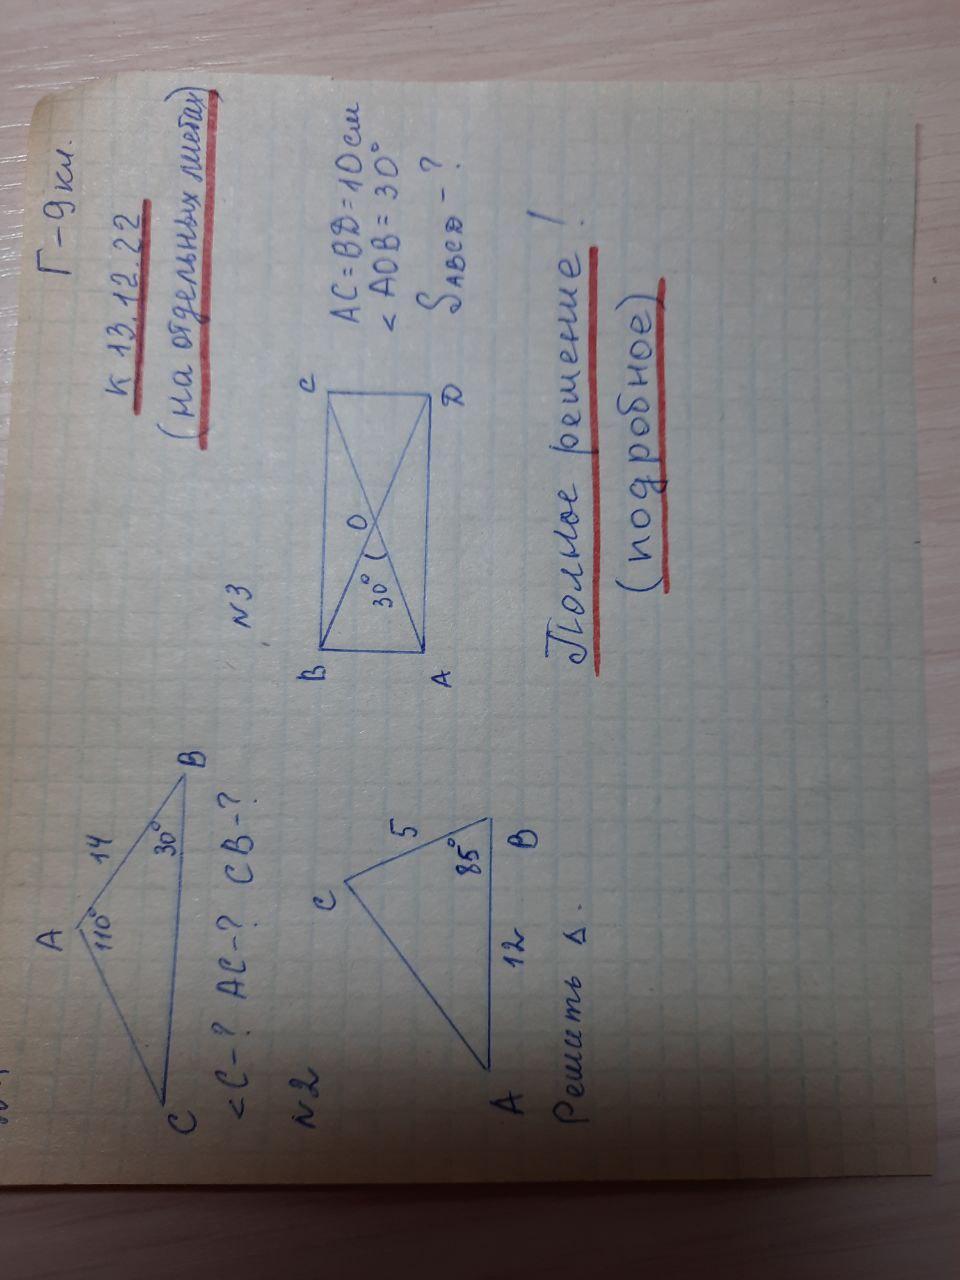 Г-9 кл.
к 13.12.22
(на отдельных листах)
A
110°
14
30°
C
B
<C-? AC-? CB-?
N2
C
5
85°
A
12
B
Решить Δ.
N3
B
C
30°
O
A
D
AC=BD=10 см
<AOB=30°
SABCD-?
Полное решение!
(подробное)